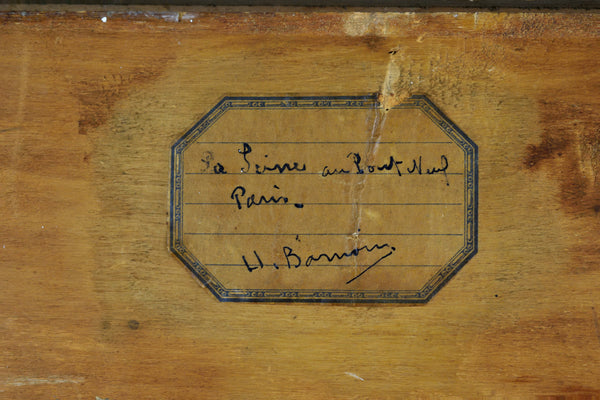 La Seine au Pont Neuf
Paris.
H. Barnoin.